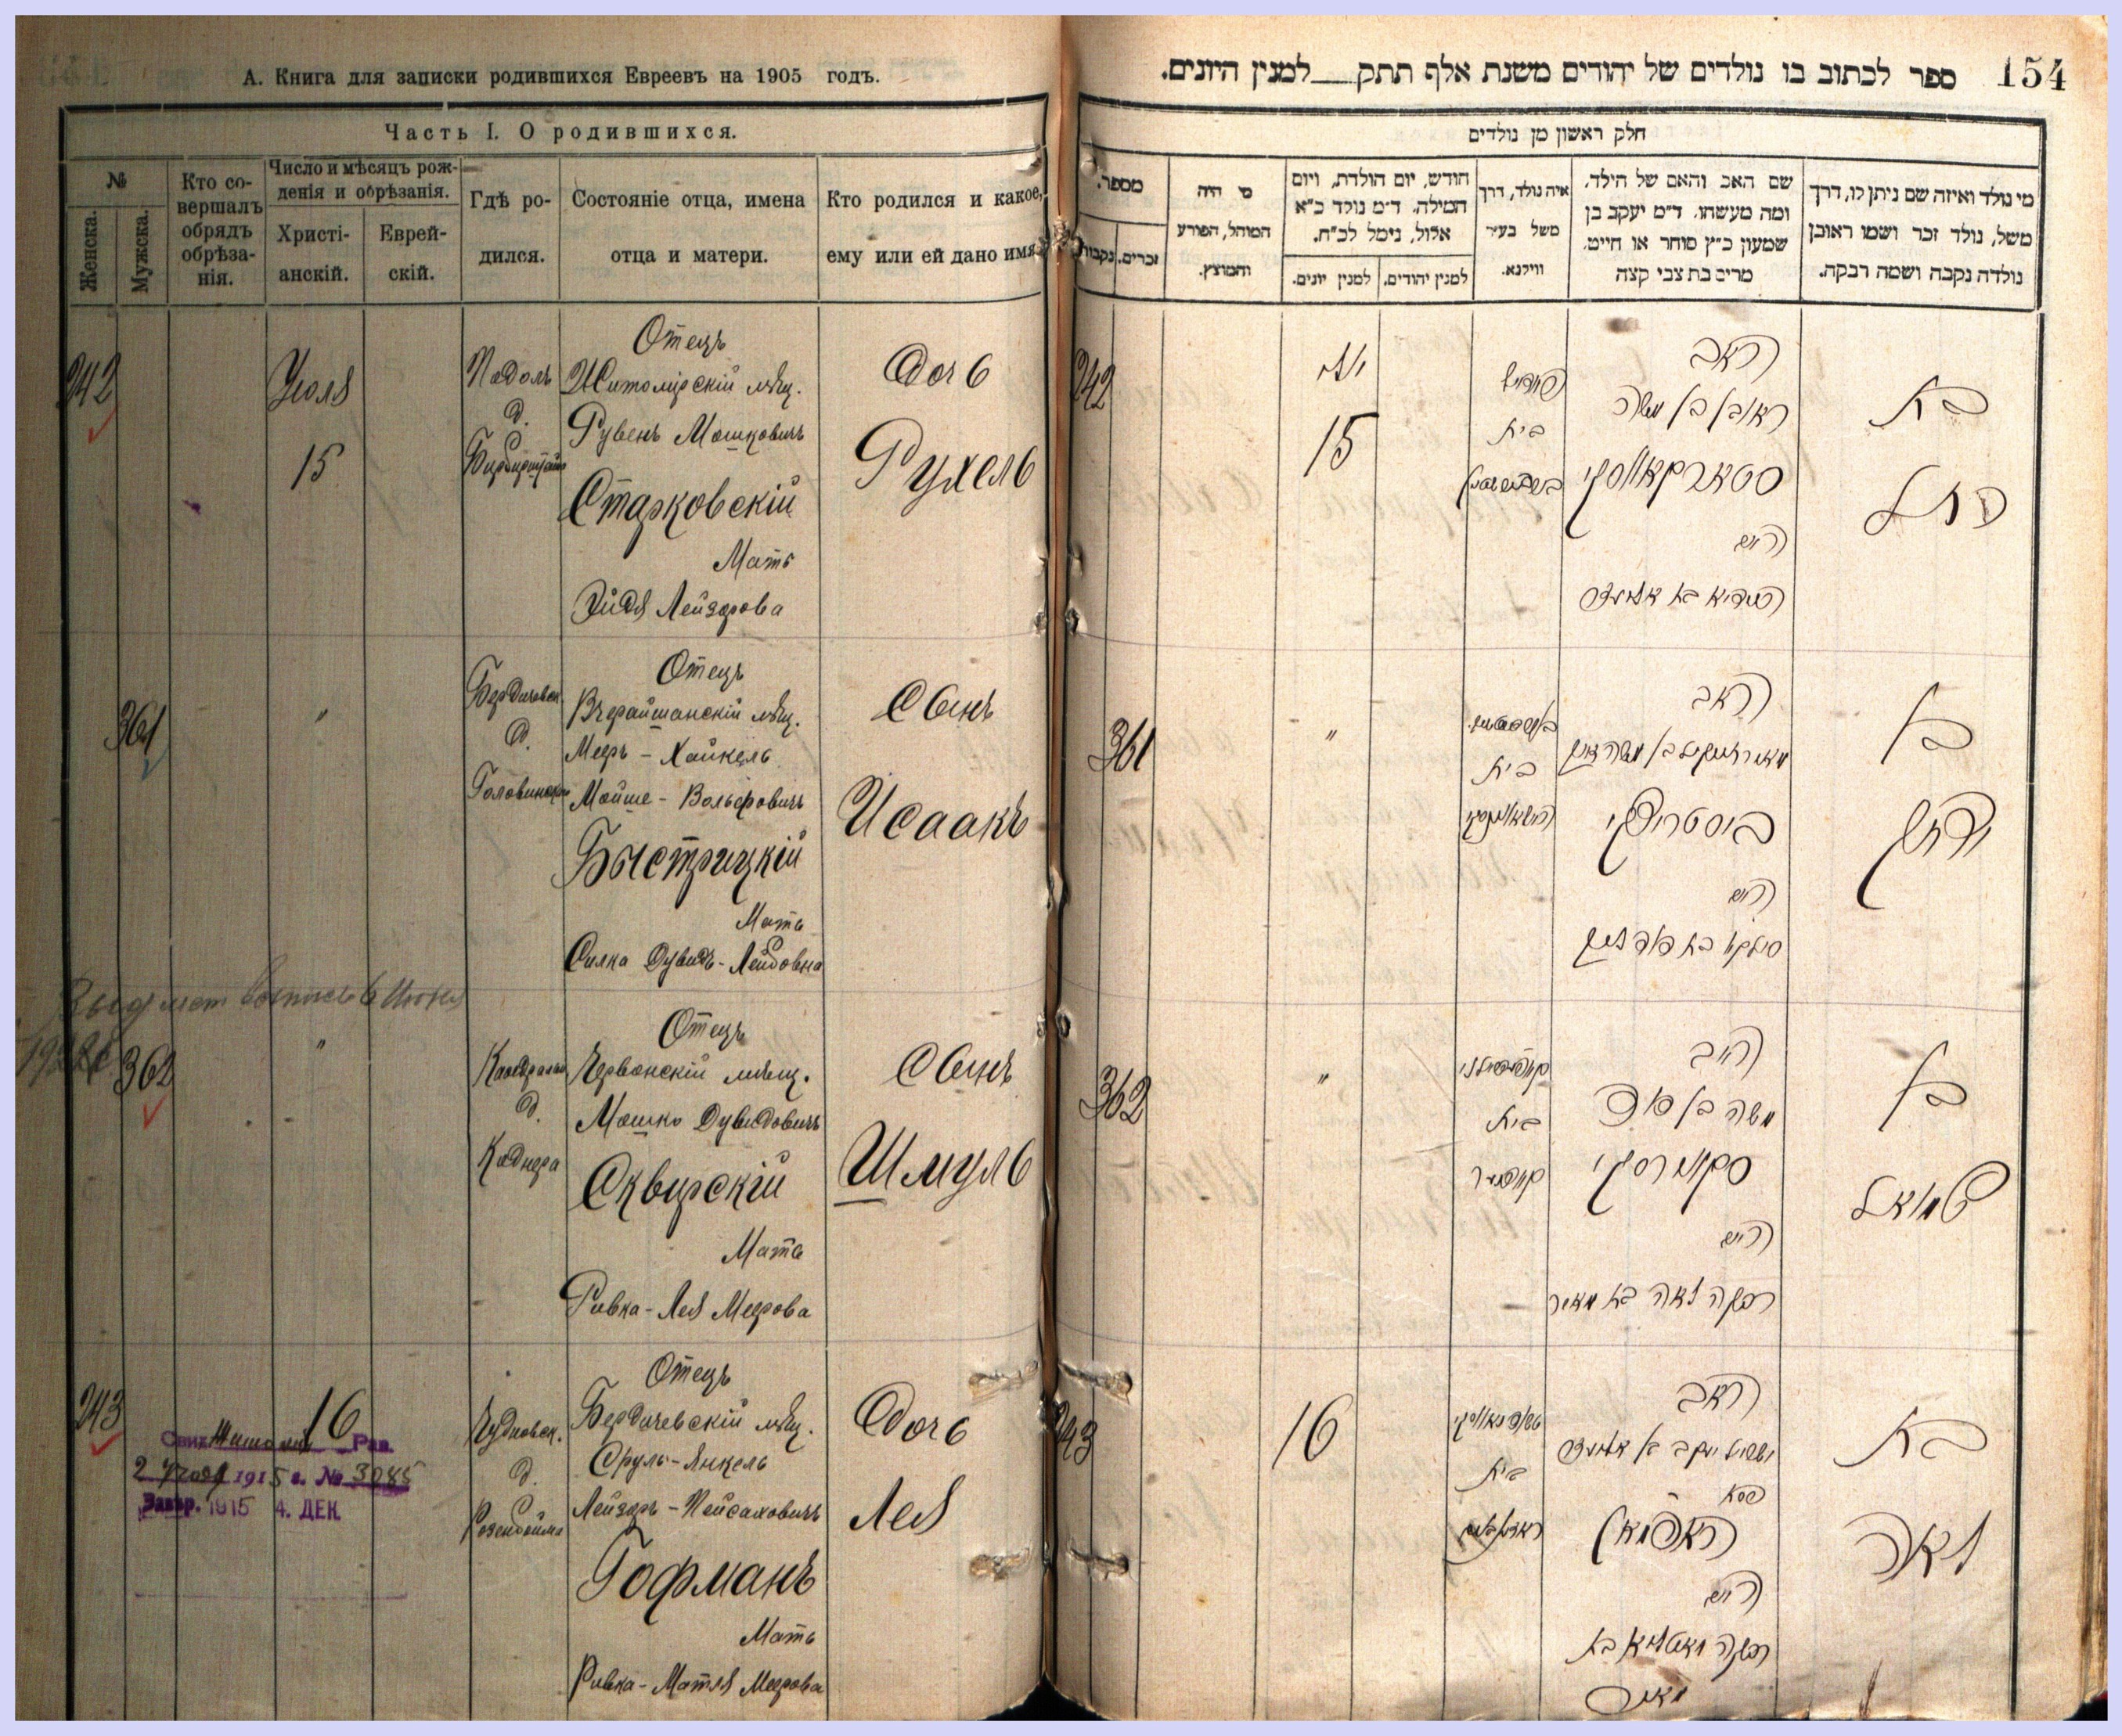 А. Книга для записки родившихся Евреевъ на 1905 годъ.
Часть I. О родившихся.
№
Женска.
Мужска.
Кто со-
вершалъ
обрядъ
обрѣза-
нія.
Число и мѣсяцъ рож-
денія и обрѣзанія.
Христі-
анскій.
Еврей-
скій.
Гдѣ ро-
дился.
Состояніе отца, имена
отца и матери.
Кто родился и какое,
ему или ей дано имя.
242
Июля
15
Отецъ
Житомірскій мѣщ.
Рувенъ Мошковичъ
Старковскій
Мать
Лейзорова
Дочь
Рухель
361
"
Бердичевск.
д.
Отецъ
Вчерайшанскій мѣщ.
Мееръ - Хайкель
Мойше - Вольфовичъ
Быстрицкій
Мать
Силка Дувидъ - Лейбовна
Сынъ
Исаакъ
362
"
д.
Каднера
Отецъ
Червонскій мѣщ.
Мошко Дувидовичъ
Сквирскій
Мать
Ривка - Лея Меерова
Сынъ
Шмуль
243
16
Чудновск.
д.
Отецъ
Бердичевскій мѣщ.
Сруль - Янкель
Лейзоръ - Пейсаховичъ
Гофманъ
Мать
Ривка - Матля Меерова
Дочь
Лея
1915 г. № 3085
1915 4. ДЕК.
154
ספר לכתוב בו נולדים של יהודים משנת אלף תתק___למנין היונים.
חלק ראשון מן נולדים
מספר.
נקבות
זכרים.
מי היה
המוהל, הפורע
והמוצץ.
חודש, יום הולדת, ויום
המילה. ד״מ נולד כ״א
אלול, נימל לכ״ח.
למנין יונים.
למנין יהודים.
איה נולד, דרך
משל בעיר
ווילנא.
שם האב והאם של הילד,
ומה מעשהו. ד״מ יעקב בן
שמעון כ״ץ סוחר או חייט,
מרים בת צבי קצה
מי נולד ואיזה שם ניתן לו, דרך
משל, נולד זכר ושמו ראובן
נולדה נקבה ושמה רבקה.
242
15
בית
האב
ראובן בן משה
סטארקאווסקי
האם
בת
רחל
361
"
בית
האב
ביסטריצקי
האם
בן
יצחק
362
"
בית
האב
משה בן דוד
סקווירסקי
האם
רבקה לאה בת מאיר
בן
שמואל
243
16
בית
האב
האפמאן
האם
מאיר
בת
לאה